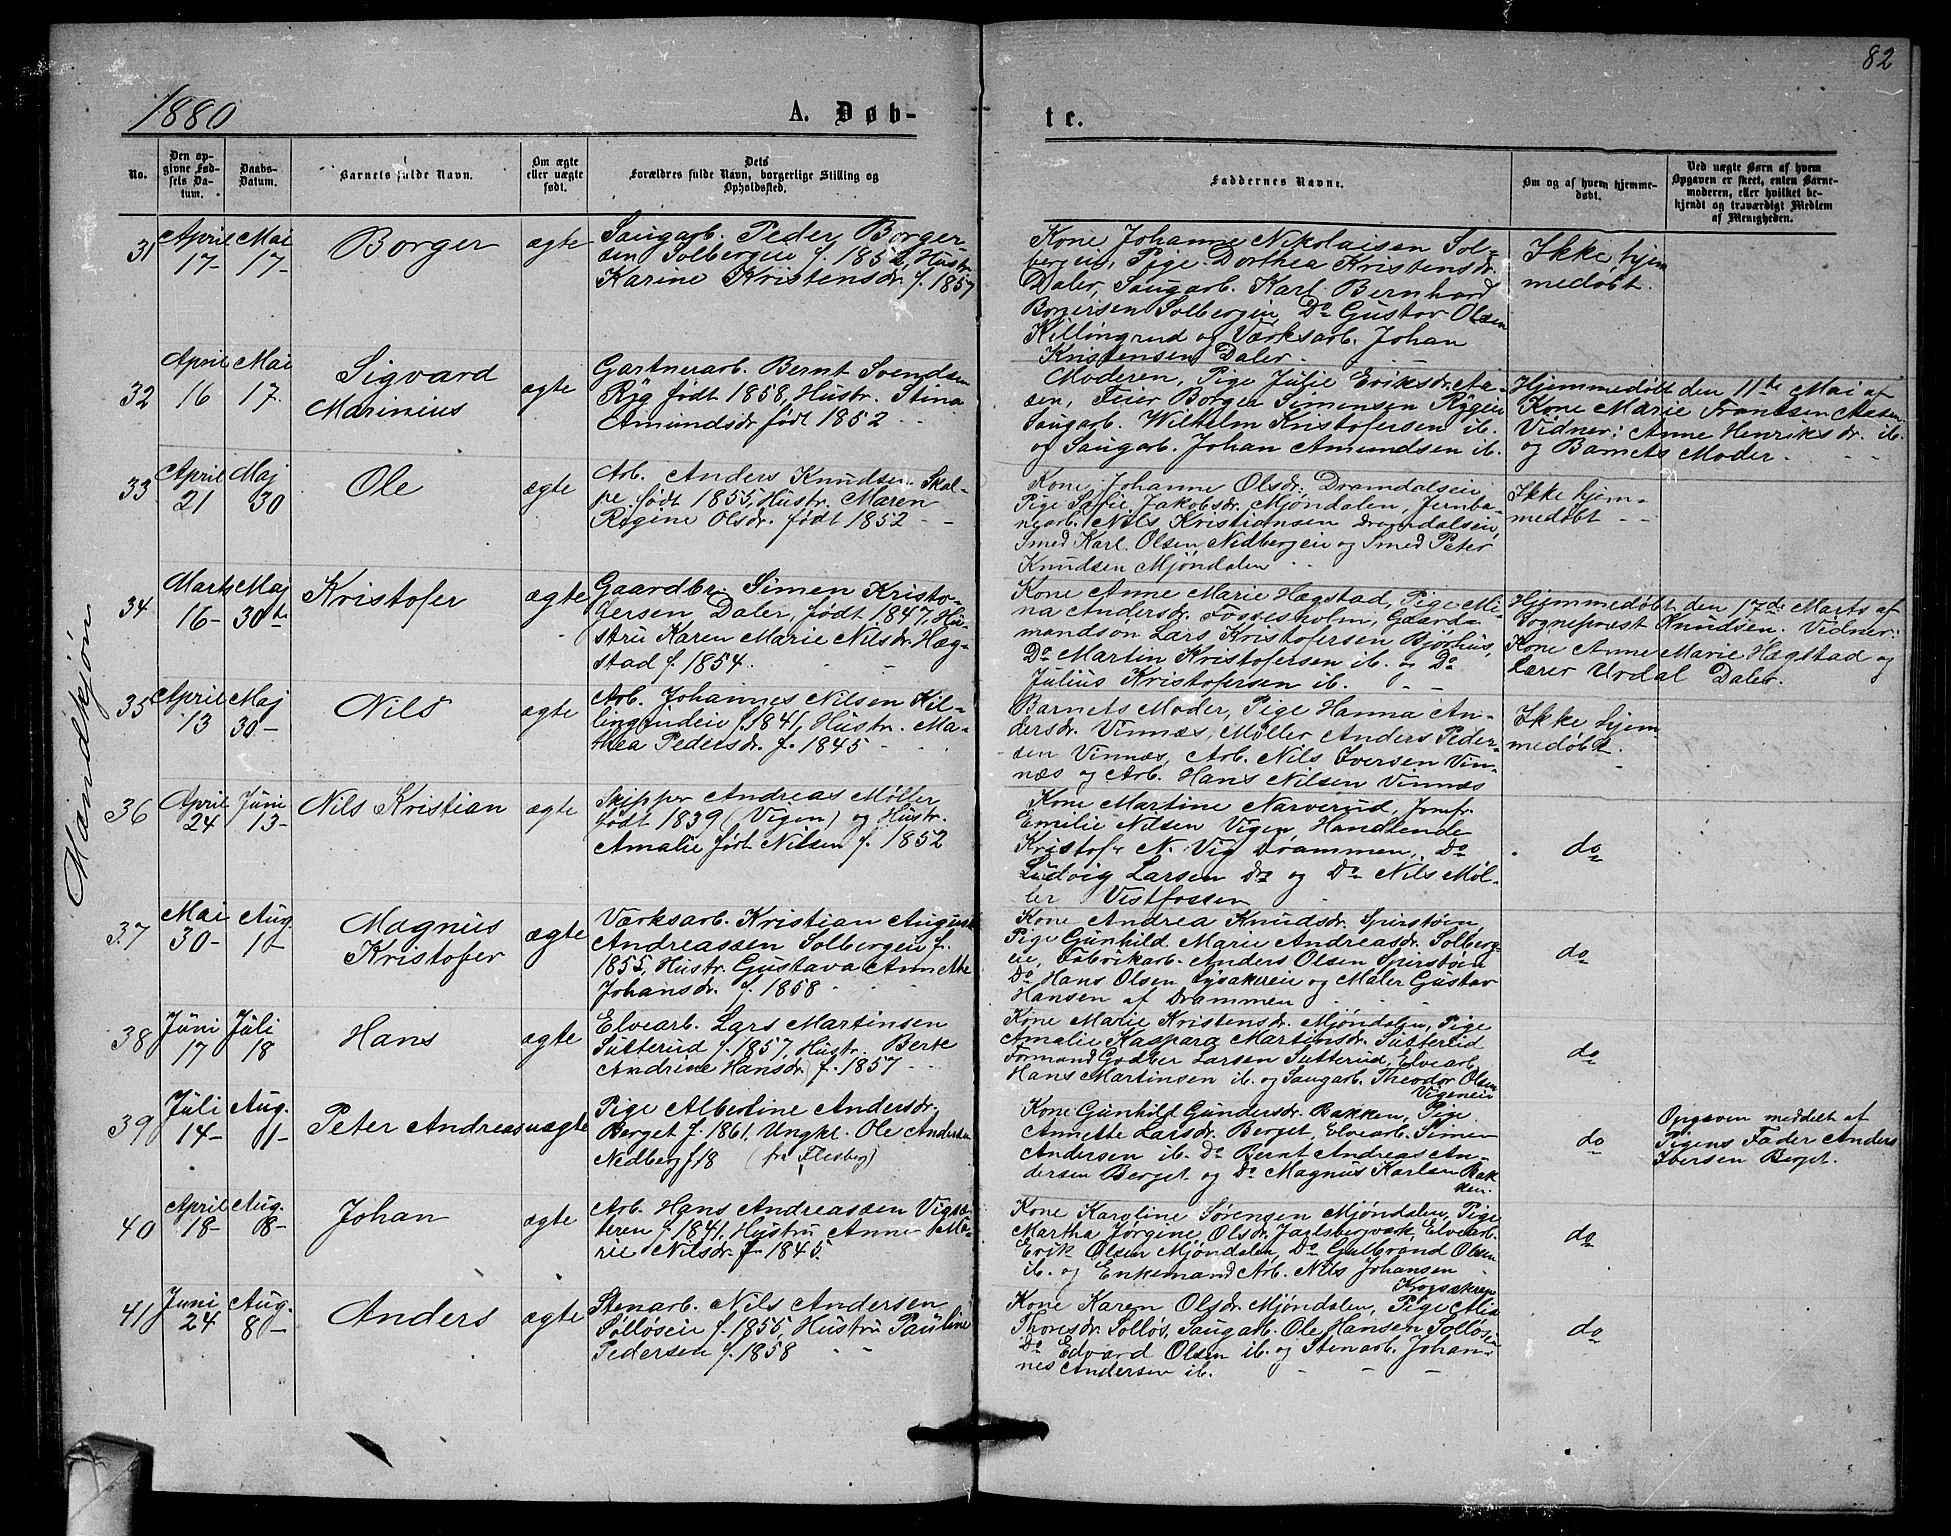 82
1880
A. Døb-
te.
No.
Den op-
givne Fød-
sels Da-
tum.
Daabs-
Datum.
Barnets fulde Navn.
Om ægte
eller uægte
født.
Dets
Forældres fulde Navn, borgerlige Stilling og
Opholdssted.
Faddernes Navne.
Om og af hvem hjemme-
døbt.
Ved uægte Børn af hvem
Opgaven er skeet, enten Barne-
moderen, eller hvilket be-
kjendt og troværdigt Medlem
af Menigheden.
Mandkjøn
31
April
17-
Mai
17-
Borger
ægte
Saugarb. Peder Borger-
sen Solbergeie f. 1852, Hustr.
Karine Kristensdr. f. 1857
Kone Johanne Nikolaisen Sol-
bergeie, Pige Dorthea Kristensdr.
Daler, Saugarb. Karl Bernhard
Solbergeie, Do Gustav Olsen
Killingrud og Værksarb. Johan
Kristensen Daler.
Ikke hjem
medøbt.
32
April
16
Mai
17.
Sigvard
Marinius
ægte
Gartnerarb. Bernt Svendsen
Ryg født 1858, Hustr. Stina
Amundsdr født 1852
Moderen, Pige Julie Eriksdr. Aa-
sen, Borger Simensen Rygeie
Saugarb. Wilhelm Kristofersen ib.
og Saugarb. Johan Amundsen ib.
Hjemmedøbt den 11te Mai af
Kone Marie Frantsen Aasen
Vidner: Anne Henriksdr. ib.
og Barnets Moder.
33
April
21
Maj
30
Ole
ægte
Arb. Anders Knudsen Skal-
pe født 1855, Hustr. Maren
Regine Olsdr. født 1852
Kone Johanne Olsdr. Dramdalseie
Pige Sofie Jakobsdr. Mjøndalen, Jernba-
nearb. Nils Kristiansen Dramdalseie,
Smed Karl Olsen Nedbergeie og Smed Peter
Knudsen Mjøndalen
Ikke hjem-
medøbt
34
Marts
16-
Maj
30te
Kristofer
ægte
Gaardbr. Simen Kristo-
fersen Daler, født 1847, Hu-
stru Karen Marie Nilsdr. Hæg-
stad f. 1854.
Kone Anne Marie Hægstad, Pige Mi-
na Andersdr. Fossesholm, Gaard-
mandsøn Lars Kristofersen Bjørhus,
Do Martin Kristofersen ib. og Do
Julius Kristofersen ib.
Hjemmedøbt den 17de Marts af
Sogneprest Knudsen. Vidner:
Kone Anne Marie Hægstad og
Lærer Urdal Daler.
35
April
13
Maj
30-
Nils
ægte
Arb. Johannes Nilsen Kil-
lingrudeie f. 1841, Hustr. Ma-
thea Pedersdr. f. 1845
Barnets Moder, Pige Hanna An-
dersdr. Vinnæs, Møller Anders Peder-
sen Vinnæs, Arb. Nils Iversen Vin-
næs og Arb. Hans Nilsen Vinnæs
Ikke hjem
medøbt.
36
April
24
Juni
13-
Nils Kristian
ægte
Skipper Andreas Møller
født 1839 (Vigen) og Hustr.
Amalie født Nilsen f. 1852
Kone Martine Narverud, Jomfr.
Emilie Nilsen Vigen, Handlende
Kristofr N. Vig Drammen, Do
Ludvig Larsen do og Do Nils Møl-
ler Vestfossen
do
37
Mai
30-
Aug.
1-
Magnus
Kristofer
ægte
Værksarb. Kristian August
Andreassen Solbergeie f.
1855, Hustr. Gustava Annette
Johansdr. f. 1858
Kone Andrea Knudsdr. Spirstøen,
Pige Gunhild Marie Andreasdr. Solberg-
eie, Fabrikarb. Anders Olsen Spirstøen
Do Hans Olsen Lysakereie og Maler Gustav
Hansen af Drammen
do
38
Juni
17
Juli
18
Hans
ægte
Elvearb. Lars Martinsen
Sutterud f. 1857, Hustr. Berte
Andrine Hansdr. f. 1857
Kone Marie Kristensdr. Mjøndalen, Pige
Amalie Kaspara Martinsdr. Sutterud
Formand Godber Larsen Sutterud, Elvearb.
Hans Martinsen ib. og Saugarb. Theodor Olsen
Vigeneie
do
39
Juli
14-
Aug.
1-
Peter Andreas
uægte
Pige Albertine Andersdr.
Berget f. 1861, Ungkl. Ole Andersen
Nedberg f. 18 (fr. Flesberg)
Kone Gunhild Gundersdr. Bakken, Pige
Annette Larsdr. Berget, Elvearb. Simen
Andersen ib. Do Bernt Andreas An-
dersen Berget og Do Magnus Karlsen Bak-
ken.
do
Opgaven meddelt af
Pigens Fader Anders
Iversen Berget.
40
April
18-
Aug.
8-
Johan
ægte
Arb. Hans Andreassen Vigsæ-
teren f. 1841, Hustru Anne Ma-
rie Nilsdr f. 1845.
Kone Karoline Sørensen Mjøndalen, Pige
Martha Jørgine Olsdr. Jarlsbergværk, Elvearb.
Erik Olsen Mjøndalen, Do Gulbrand Olsen
ib. og Enkemand Arb. Nils Johansen
do
41
Juni
24
Aug.
8-
Anders
ægte
Stenarb. Nils Andersen
Solløseie f. 1855, Hustru Pauline
Pedersen f. 1858
Kone Karen Olsdr. Mjøndalen, Pige Mia
Thoresdr. Solløs, Saugarb. Ole Hansen Solløs,
Do Edvard Olsen ib. og Stenarb. Johan-
nes Andersen ib.
do